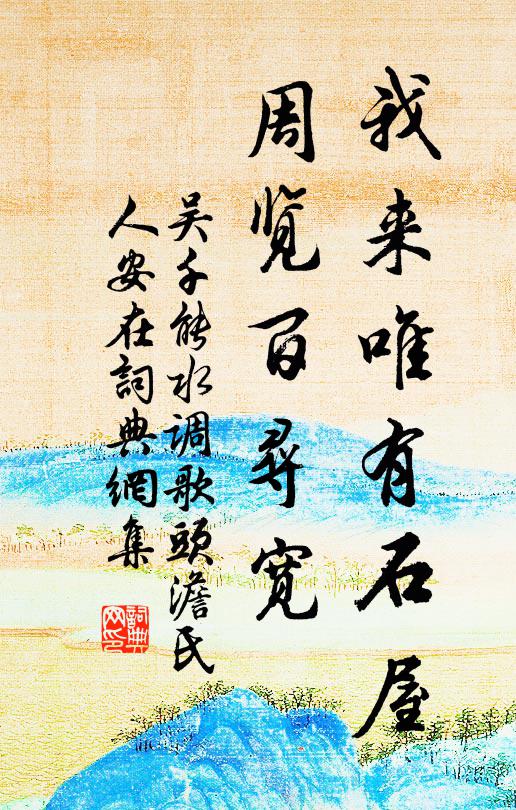 我来唯有石屋
周览百寻宽
吴千能水调歌頭澹氏
人安在詞典網集
詞典
网印